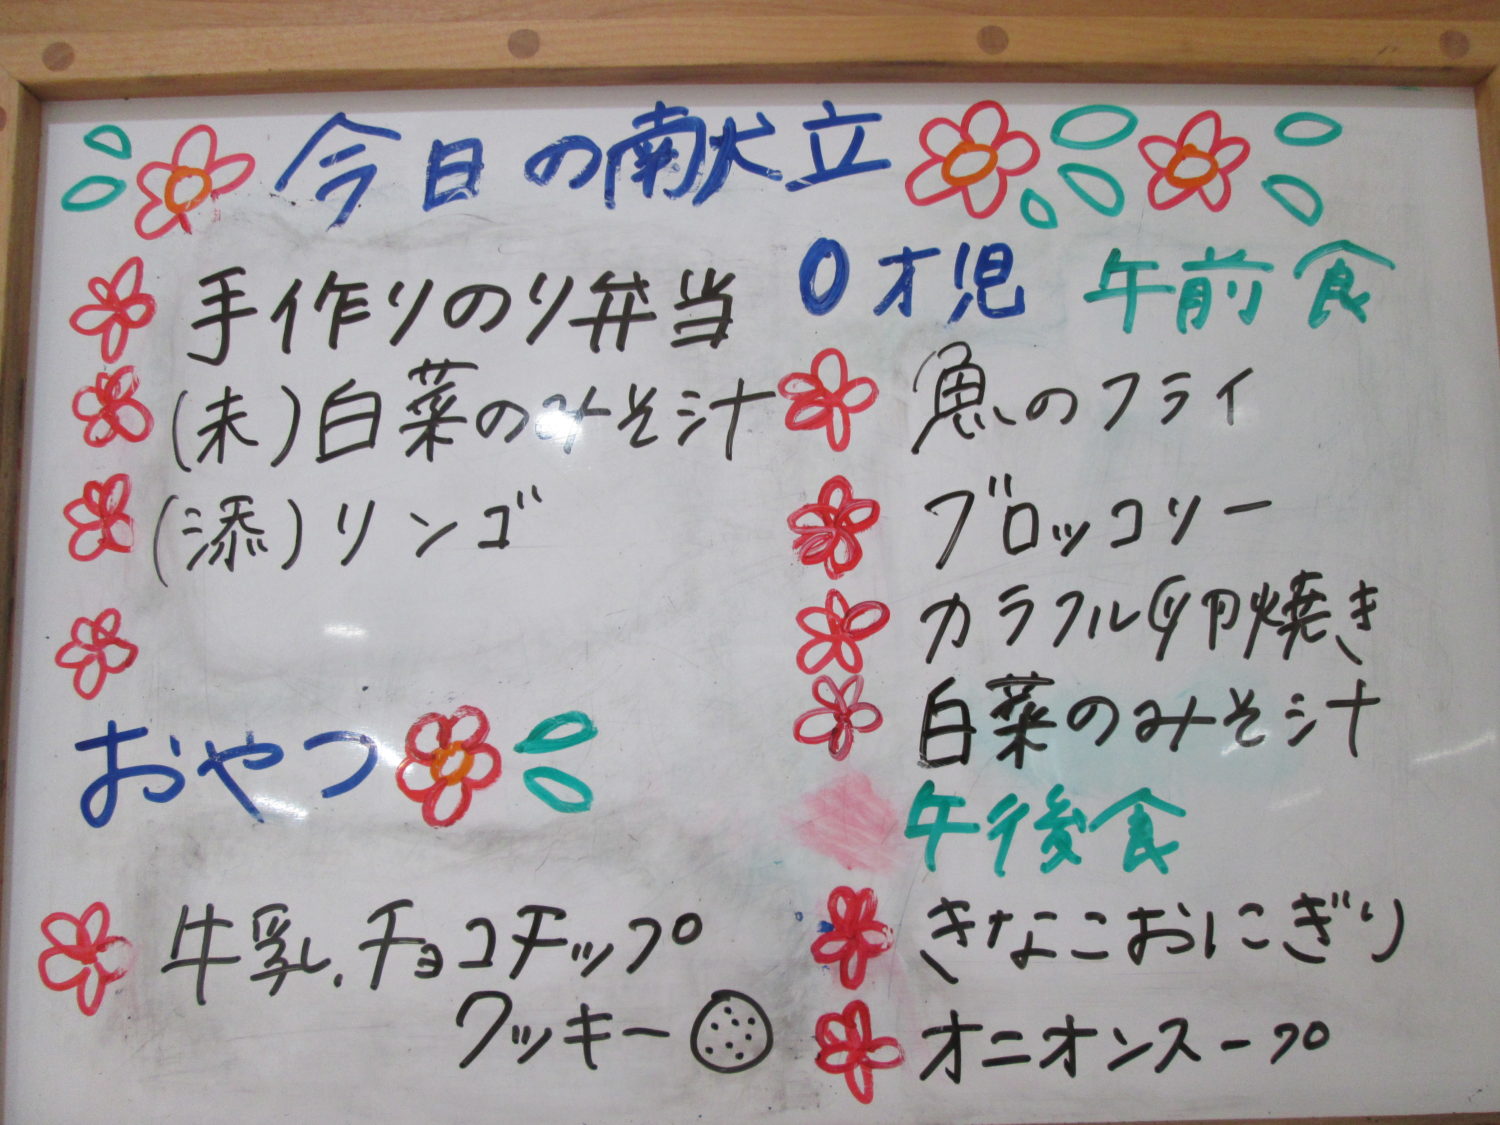 今日の献立
手作りのり弁当
(未)白菜のみそ汁
(添)リンゴ
おやつ
牛乳、チョコチップ
クッキー
0才児 午前食
魚のフライ
ブロッコリー
カラフル卵焼き
白菜のみそ汁
午後食
きなこおにぎり
オニオンスープ